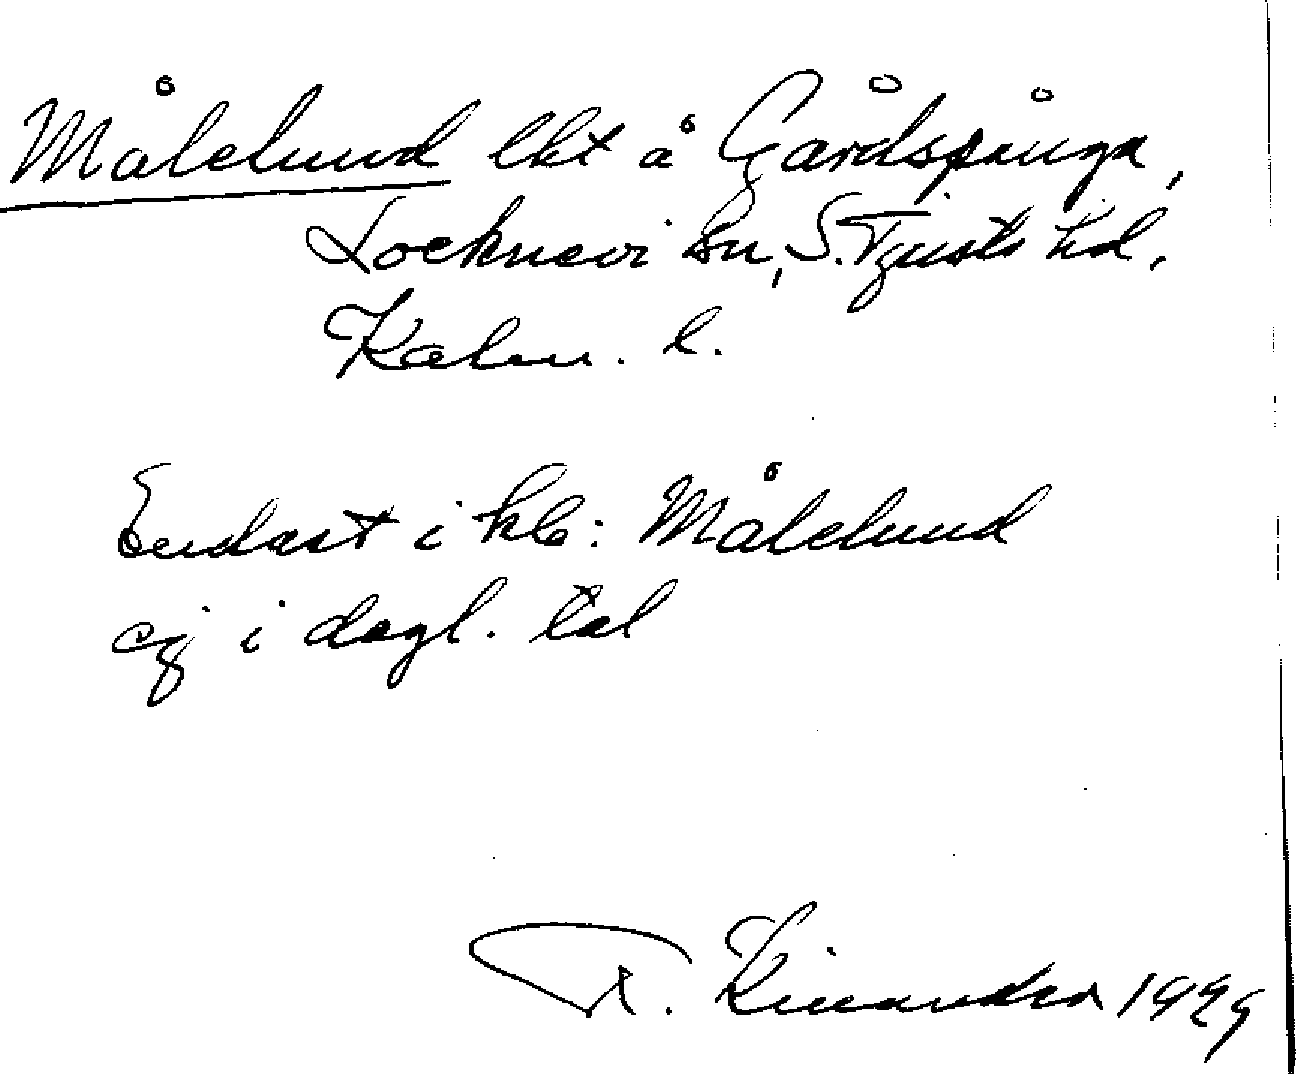 Målelund lht å Gårdspånga,
Locknevi sn, S. Tjusts hd,
Kalm. l.
Endast i kb: Målelund
ej i dagl. tal
R. Kinander 1929